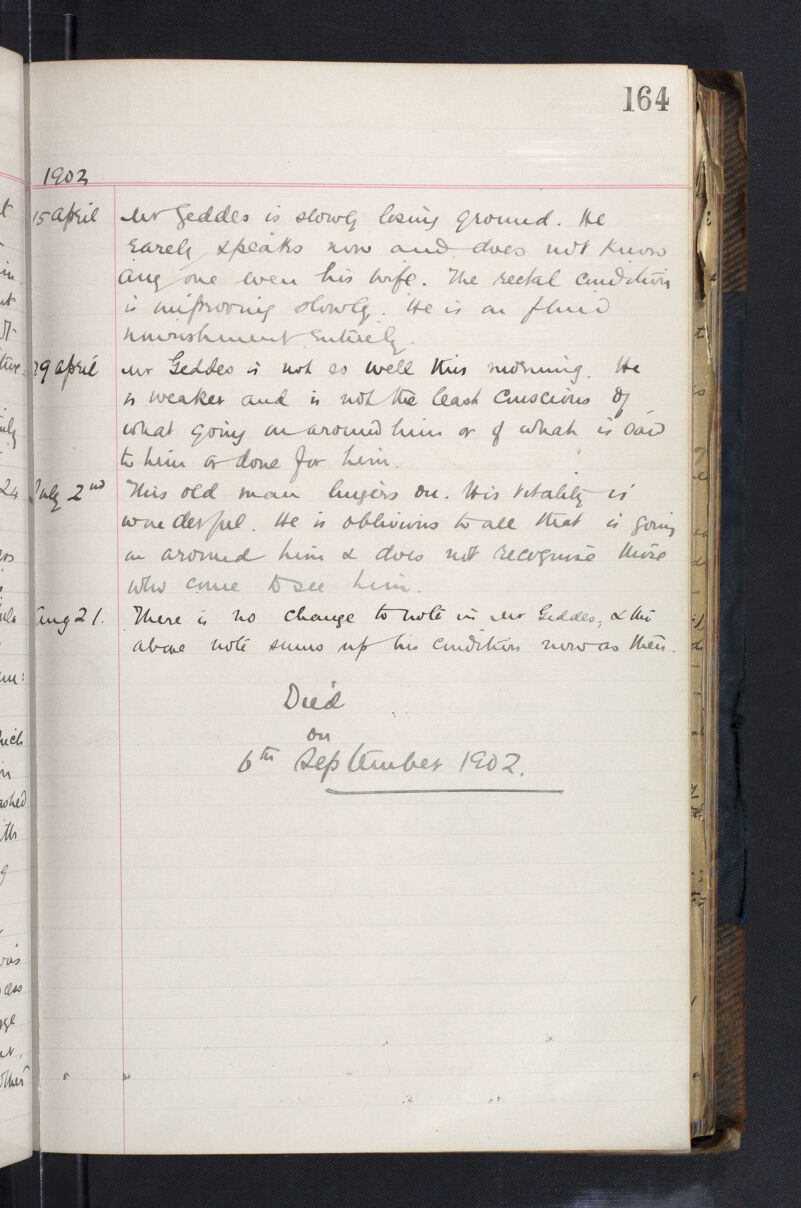 164
1902
15 April Mr Geddes is slowly losing ground. He
rarely speaks now and does not know
any one even his wife. The rectal condition
is improving slowly. He is on fluid
nourishment entirely.
29 April Mr Geddes is not so well this morning. He
is weaker and is not the least conscious of
what going on around him or of what is said
to him or done for him.
July 2nd This old man lingers on. His vitality is
wonderful. He is oblivious to all that is going
on around him & does not recognise those
who come to see him.
Aug 21. There is no change to note in Mr Geddes, & the
above note sums up his condition now as then.
Died
on
6th September 1902.